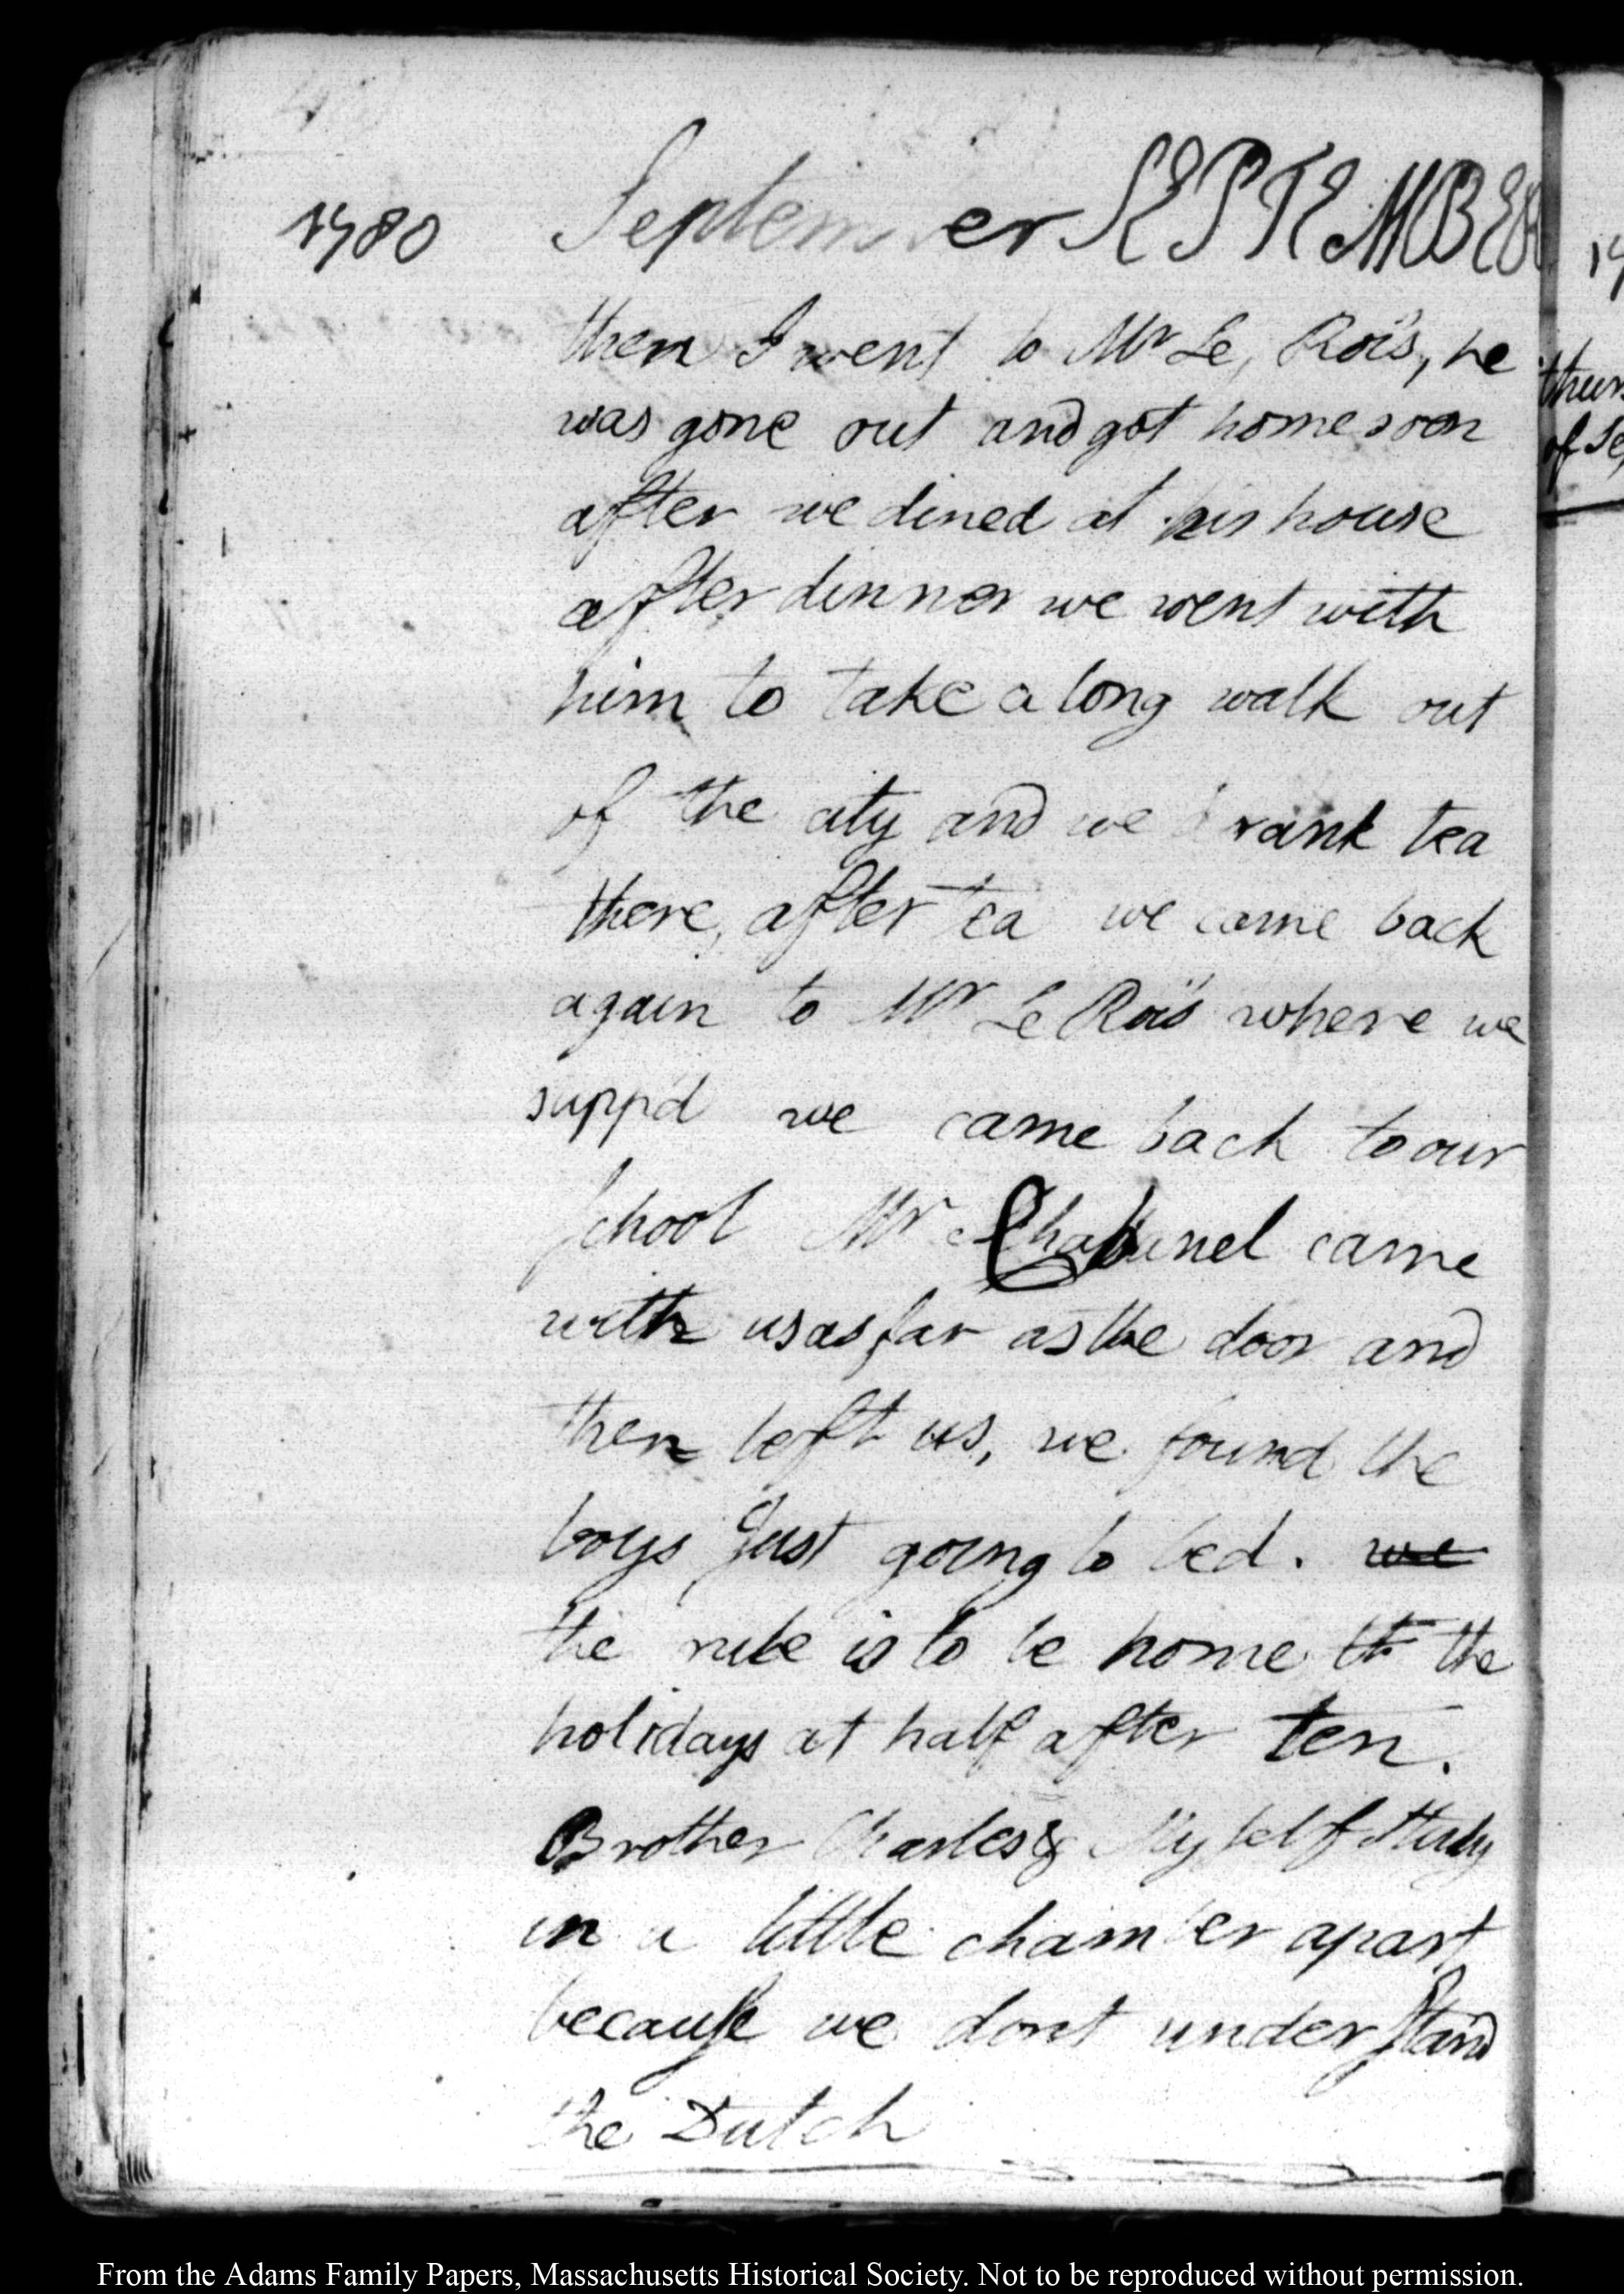 1780 September SEPTEMBER
then I went to Mr Le, Rois, he
was gone out and got home soon
after we dined at his house
after dinner we went with
him to take a long walk out
of the city and we drank tea
there, after tea we came back
again to Mr Le Rois where we
supp'd we came back to our
school Mr came
with us as far as the door and
then left us, we found the
boys just going to bed. we
the rule is to be home th the
holidays at half after ten.
Brother Charles & Myself study
in a little chamber apart
because we dont understand
the Dutch
From the Adams Family Papers, Massachusetts Historical Society. Not to be reproduced without permission.